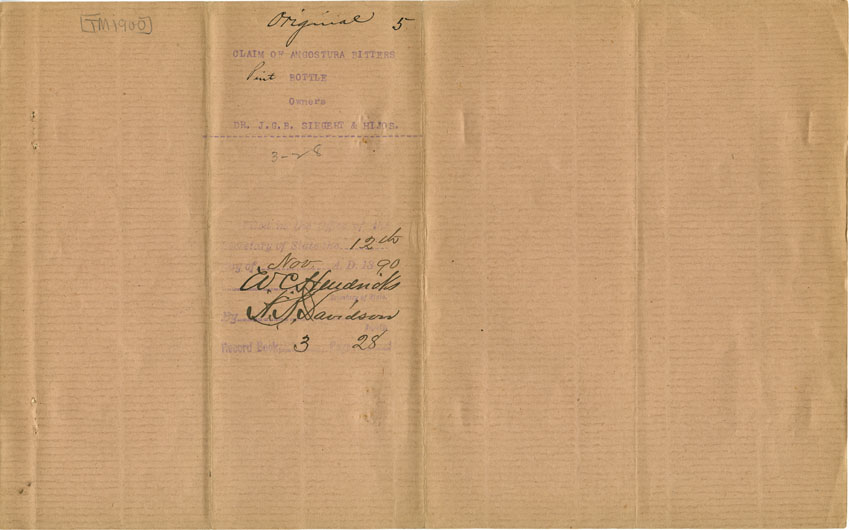 TM1900
Original 5
CLAIM OF ANGOSTURA BITTERS
Pint BOTTLE
Owners
DR. J.G.B. SIEGERT & HIJOS.
3-28
Filed in the
Secretary of State 12th
Day of Nov A.D. 1890
W C Hendricks
By
Davidson
Record Book 3 Page 28